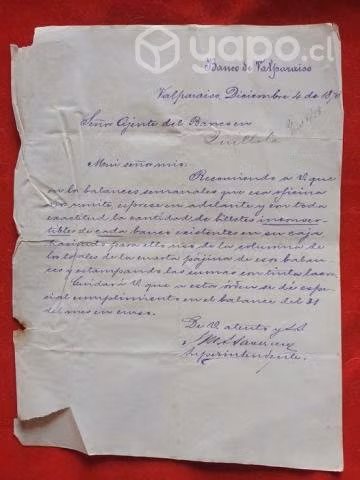 yapo.cl
Banco de Valparaiso
Valparaiso, Diciembre 4 de 18
Señor Ajente del Banco en
Quillota
Mui señor mio:
Recomiendo a U que
en los balances semanales que esa oficina
nos remite, esprese en adelante y con toda
exactitud la cantidad de billetes inconver
tibles de cada banco existentes en su caja
haciendo para ello uso de la columna de
los totales de la cuarta pájina de esos balan
ces y estampando las sumas con tinta
Cuidará U que a esta órden se dé espe
cial cumplimiento en el balance del 31
del mes en curso.
De U atento y S.S.
Superintendente.